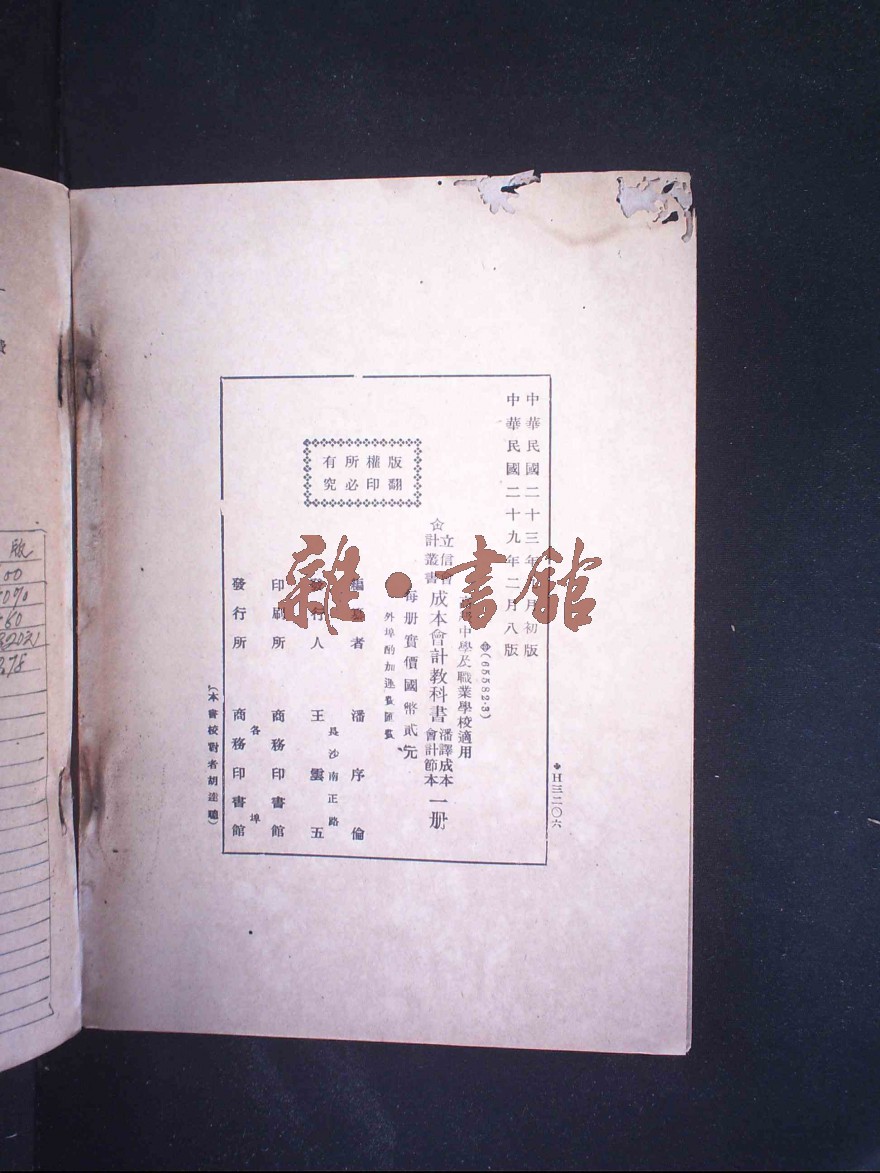 中華民國二十三年 月初版
中華民國二十九年二月八版
(65582·3)
中學及職業學校適用
立信會
計叢書
成本會計教科書
潘譯成本
會計節本
一册
每册實價國幣貳元
外埠酌加運費匯費
版權所有
翻印必究
編 者 潘序倫
發行人 王雲五
長沙南正路
印刷所 商務印書館
發行所 商務印書館
各埠
(本書校對者胡達聰)
H三二〇六
雜·書館
版
00